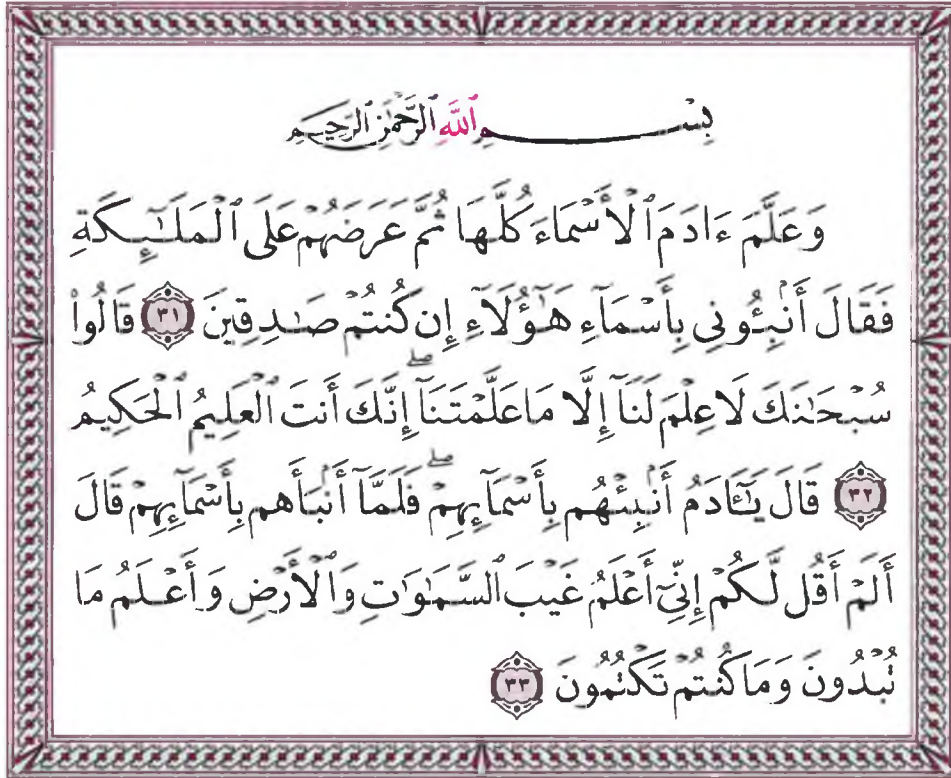 بِسْمِ ٱللَّهِ ٱلرَّحْمَٰنِ ٱلرَّحِيمِ
وَعَلَّمَ ءَادَمَ ٱلْأَسْمَآءَ كُلَّهَا ثُمَّ عَرَضَهُمْ عَلَى ٱلْمَلَـٰٓئِكَةِ
فَقَالَ أَنۢبِـُٔونِى بِأَسْمَآءِ هَـٰٓؤُلَآءِ إِن كُنتُمْ صَـٰدِقِينَ ٣١ قَالُوا۟
سُبْحَـٰنَكَ لَا عِلْمَ لَنَآ إِلَّا مَا عَلَّمْتَنَآ ۖ إِنَّكَ أَنتَ ٱلْعَلِيمُ ٱلْحَكِيمُ
٣٢ قَالَ يَـٰٓـَٔادَمُ أَنۢبِئْهُم بِأَسْمَآئِهِمْ ۖ فَلَمَّآ أَنۢبَأَهُم بِأَسْمَآئِهِمْ قَالَ
أَلَمْ أَقُل لَّكُمْ إِنِّىٓ أَعْلَمُ غَيْبَ ٱلسَّمَـٰوَٰتِ وَٱلْأَرْضِ وَأَعْلَمُ مَا
تُبْدُونَ وَمَا كُنتُمْ تَكْتُمُونَ ٣٣